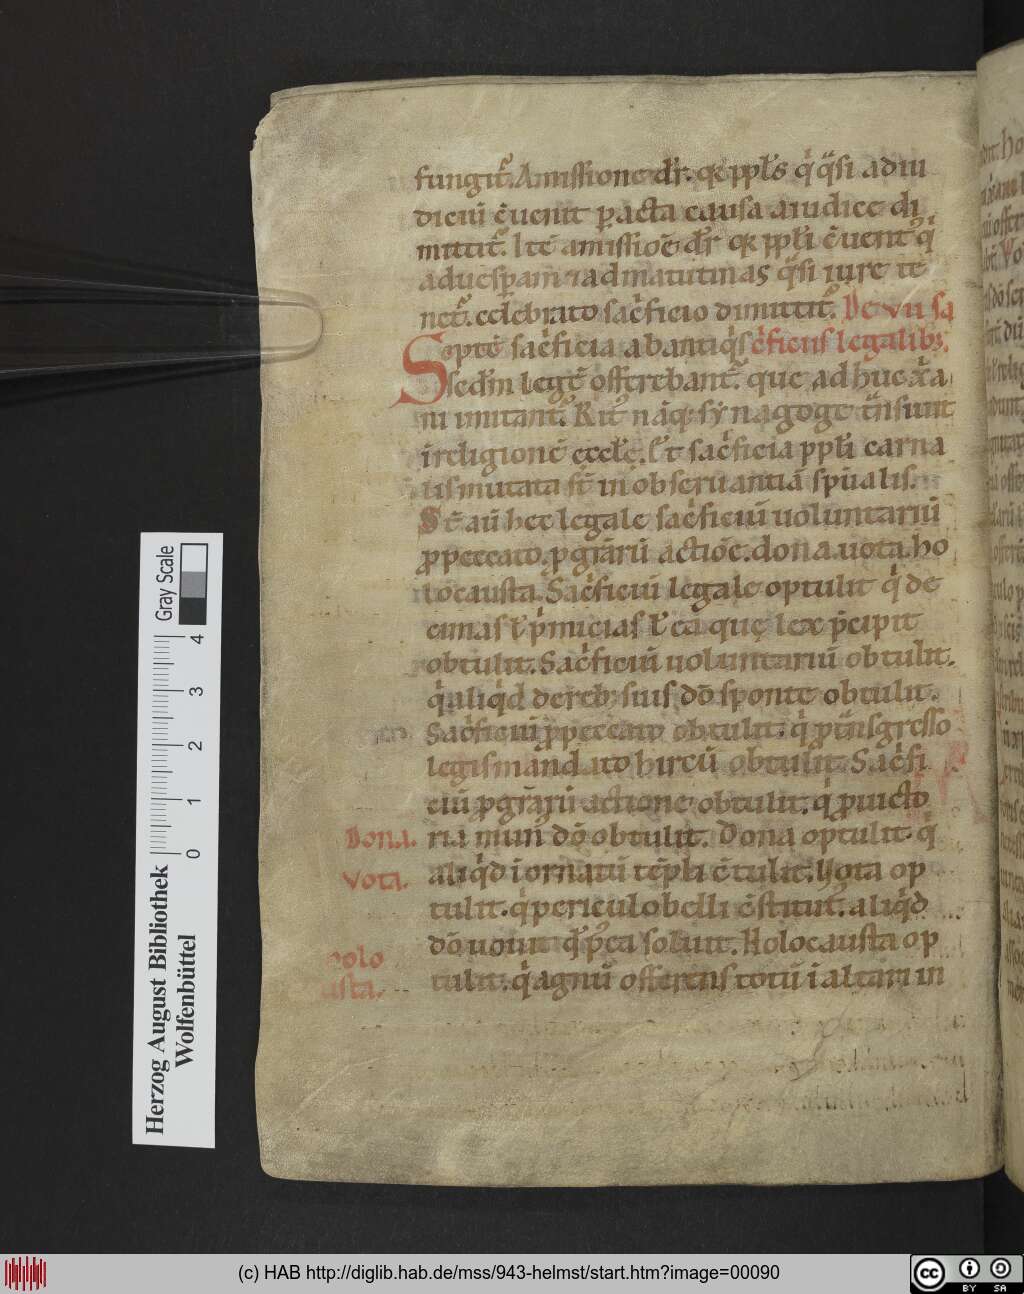 fungit᷑. A missione dr̄. qꝛ ppl̄s q̇ q̈si ad iu
diciū c̄uenit ꝑacta causa a iudice di
mittit᷑. Itē a missiōe dr̄ qꝛ ppl̄i c̄uenit᷑ q̇
ad uesꝑam ⁊ ad matutinas q̈si iure te
net᷑. celebrato sac̓ficio dimittit᷑. De vii sa
Septē sac̓ficia ab antiq̇s c̓ficiis legalibꝫ.
sedm̄ legē offerebant᷑. que adhuc xr̄a
ni imitant᷑. Rit᷒ nāqꝫ synagoge tn̈siunt
ī religionē eccl̄e. l̄ r̄ sac̓ficia ppl̄i carna
lis mutata st̄ in obseruantiā spūalis.
St̄ aū hec legale sac̓ficiū uoluntariū
ꝓ peccato. ꝓ grār̄ū actiōe. dona. uota. ho
locausta. Sac̓ficiū legale optulit q̇ de
cimas ł p̓micias ł ea quę lex p̄cipit
obtulit. Sac̓ficiū uoluntariū obtulit.
q̇ aliq̇d de rebꝫ suis dō sponte obtulit.
Sac̓ficiū ꝓ peccato obtulit. q̇ ꝓ tn̈sgresso
legis mandato hircū obtulit. Sac̓fi
ciū ꝓ grārū actione obtulit. q̇ ꝓ uicto
Dona. ria mun̄ dō obtulit. Dona optulit q̇
Vota. aliq̇d ī ornatū tēpli c̄tulit. Vota op
tulit. q̇ periculo belli c̄stitut᷒ aliq̇d
dō uouit q̇ p᷒ea soluit. Holocausta op
olo
usta. tulit. q̇ agnū offerens totū ī altari in
Herzog August Bibliothek
Wolfenbüttel
0 1 2 3 4
Gray Scale
(c) HAB http://diglib.hab.de/mss/943-helmst/start.htm?image=00090
cc BY SA